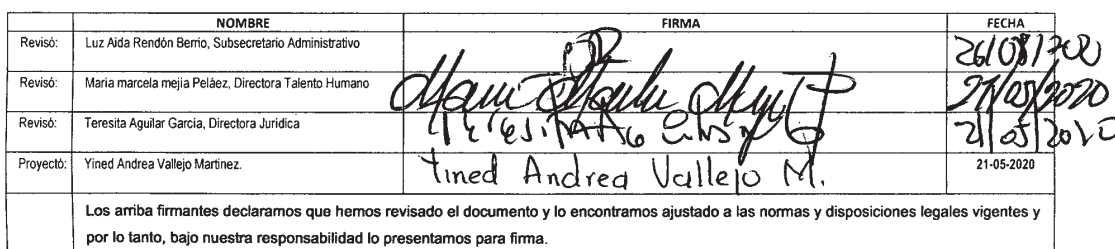 NOMBRE FIRMA FECHA
Revisó: Luz Aida Rendón Berrio, Subsecretario Administrativo
Revisó: Maria marcela mejia Peláez, Directora Talento Humano 21/05/2020
Revisó: Teresita Aguilar Garcia, Directora Jurídica 21/05/2020
Proyectó: Yined Andrea Vallejo Martinez. Yined Andrea Vallejo M. 21-05-2020
Los arriba firmantes declaramos que hemos revisado el documento y lo encontramos ajustado a las normas y disposiciones legales vigentes y
por lo tanto, bajo nuestra responsabilidad lo presentamos para firma.